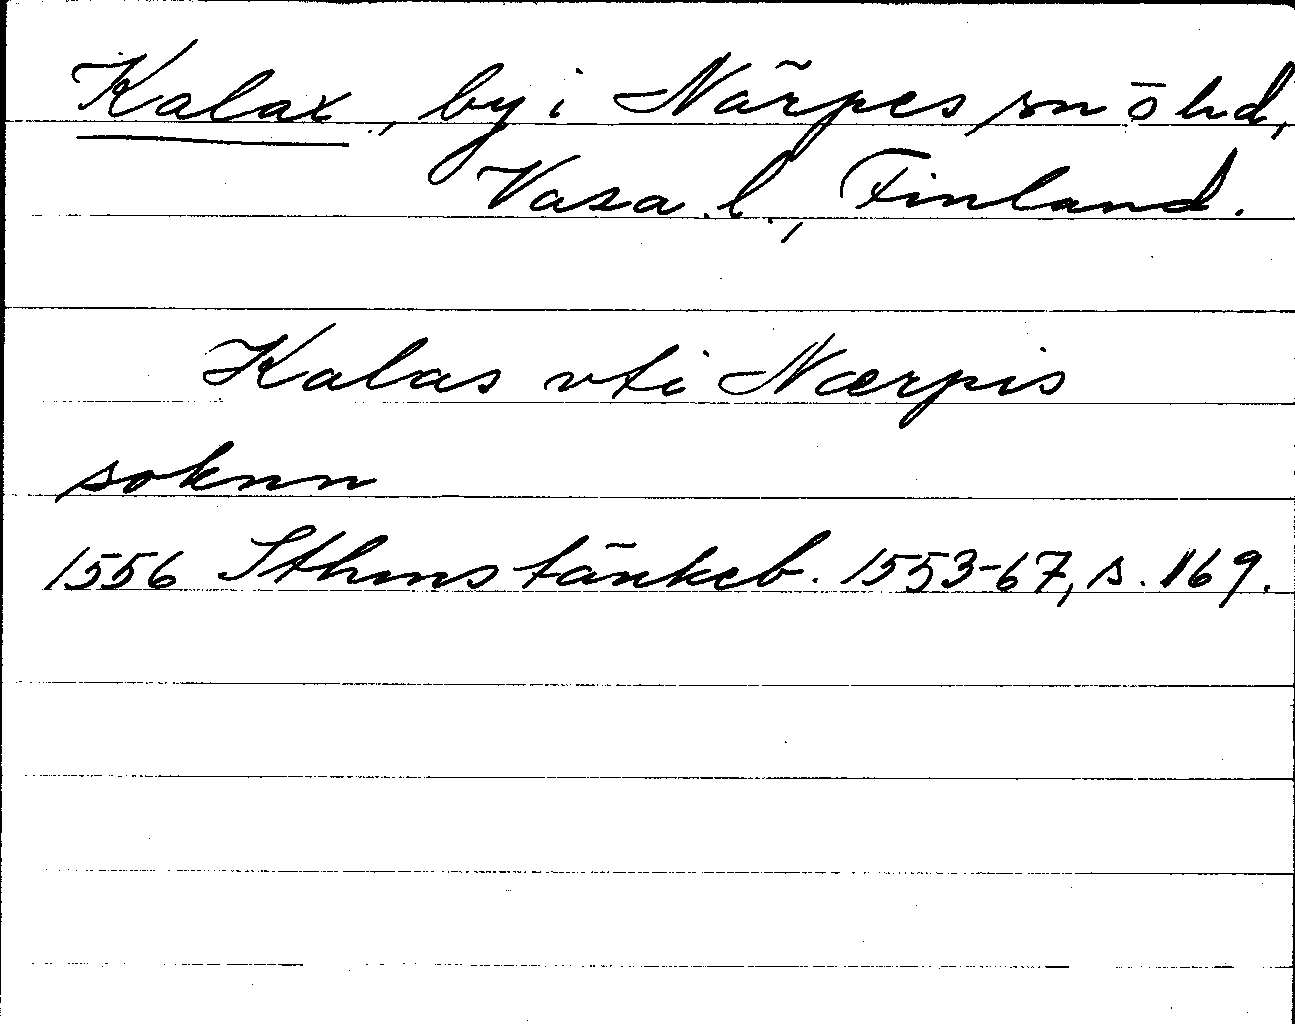 Kalax, by i Närpes sn o hd,
Vasa l., Finland.
Kalas vti Nærpis
soknn
1556 Sthms tänkeb. 1553-67, s. 169.